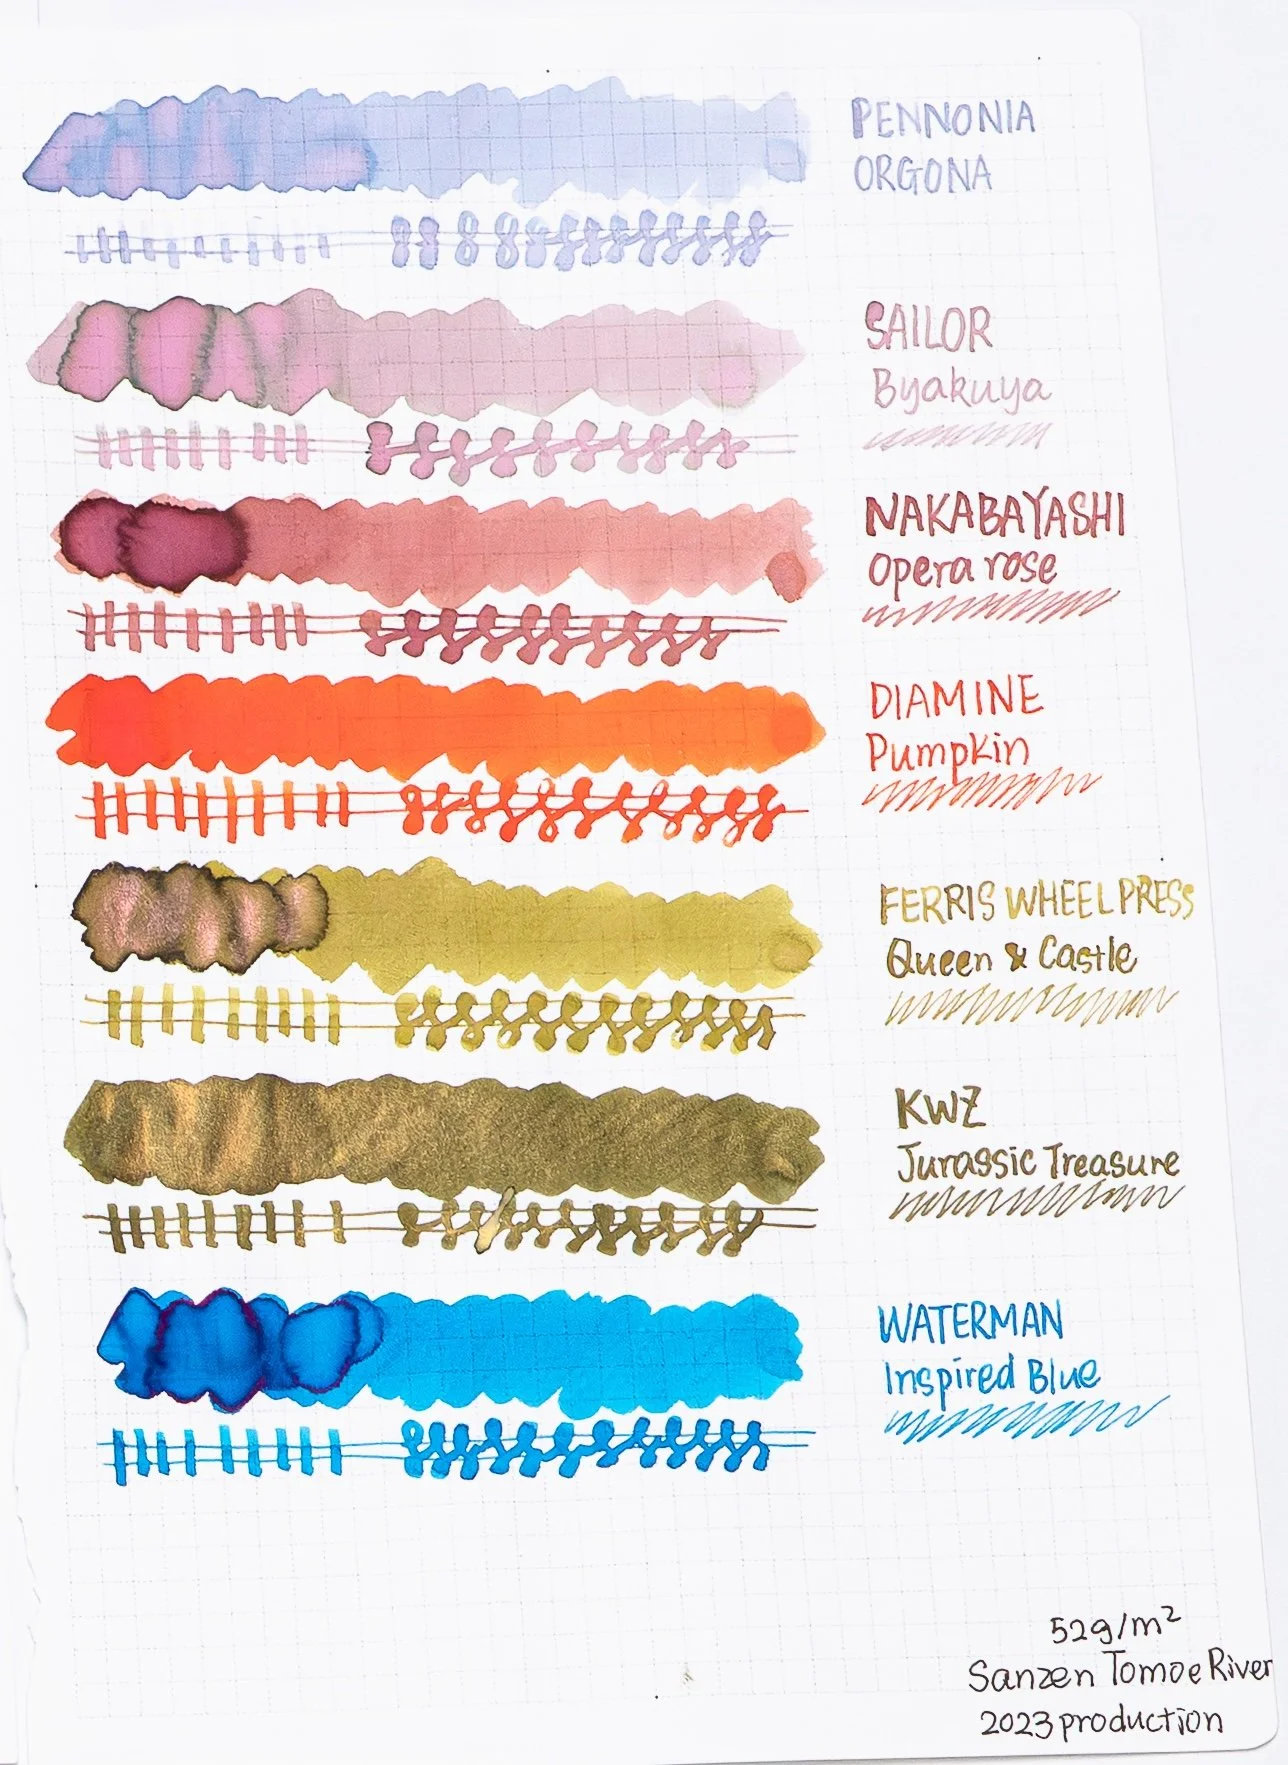 PENNONIA
ORGONA
SAILOR
Byakuya
NAKABAYASHI
Opera rose
DIAMINE
Pumpkin
FERRIS WHEEL PRESS
Queen & Castle
KWZ
Jurassic Treasure
WATERMAN
Inspired Blue
52g/m²
Sanzen Tomoe River
2023 production